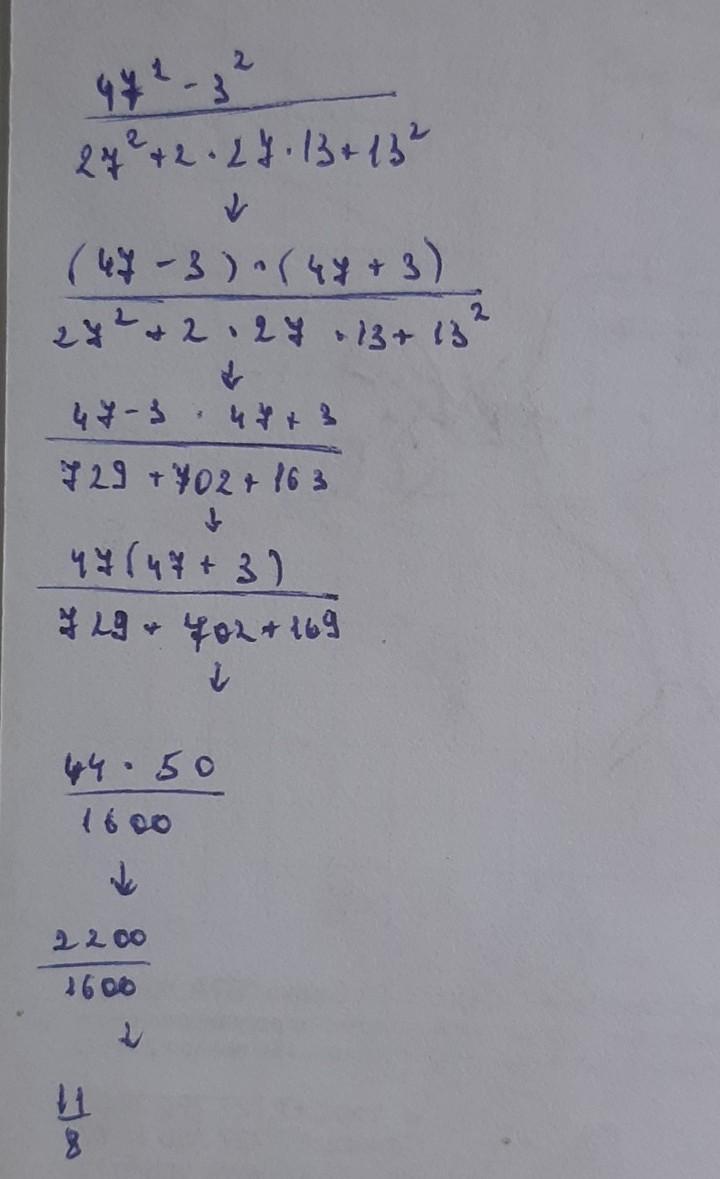 47² - 3²
27² + 2 · 27 · 13 + 13²
↓
(47 - 3) · (47 + 3)
27² + 2 · 27 · 13 + 13²
↓
47 - 3 · 47 + 3
729 + 702 + 163
↓
47(47 + 3)
729 + 702 + 169
↓
44 · 50
1600
↓
2200
1600
↓
11
8